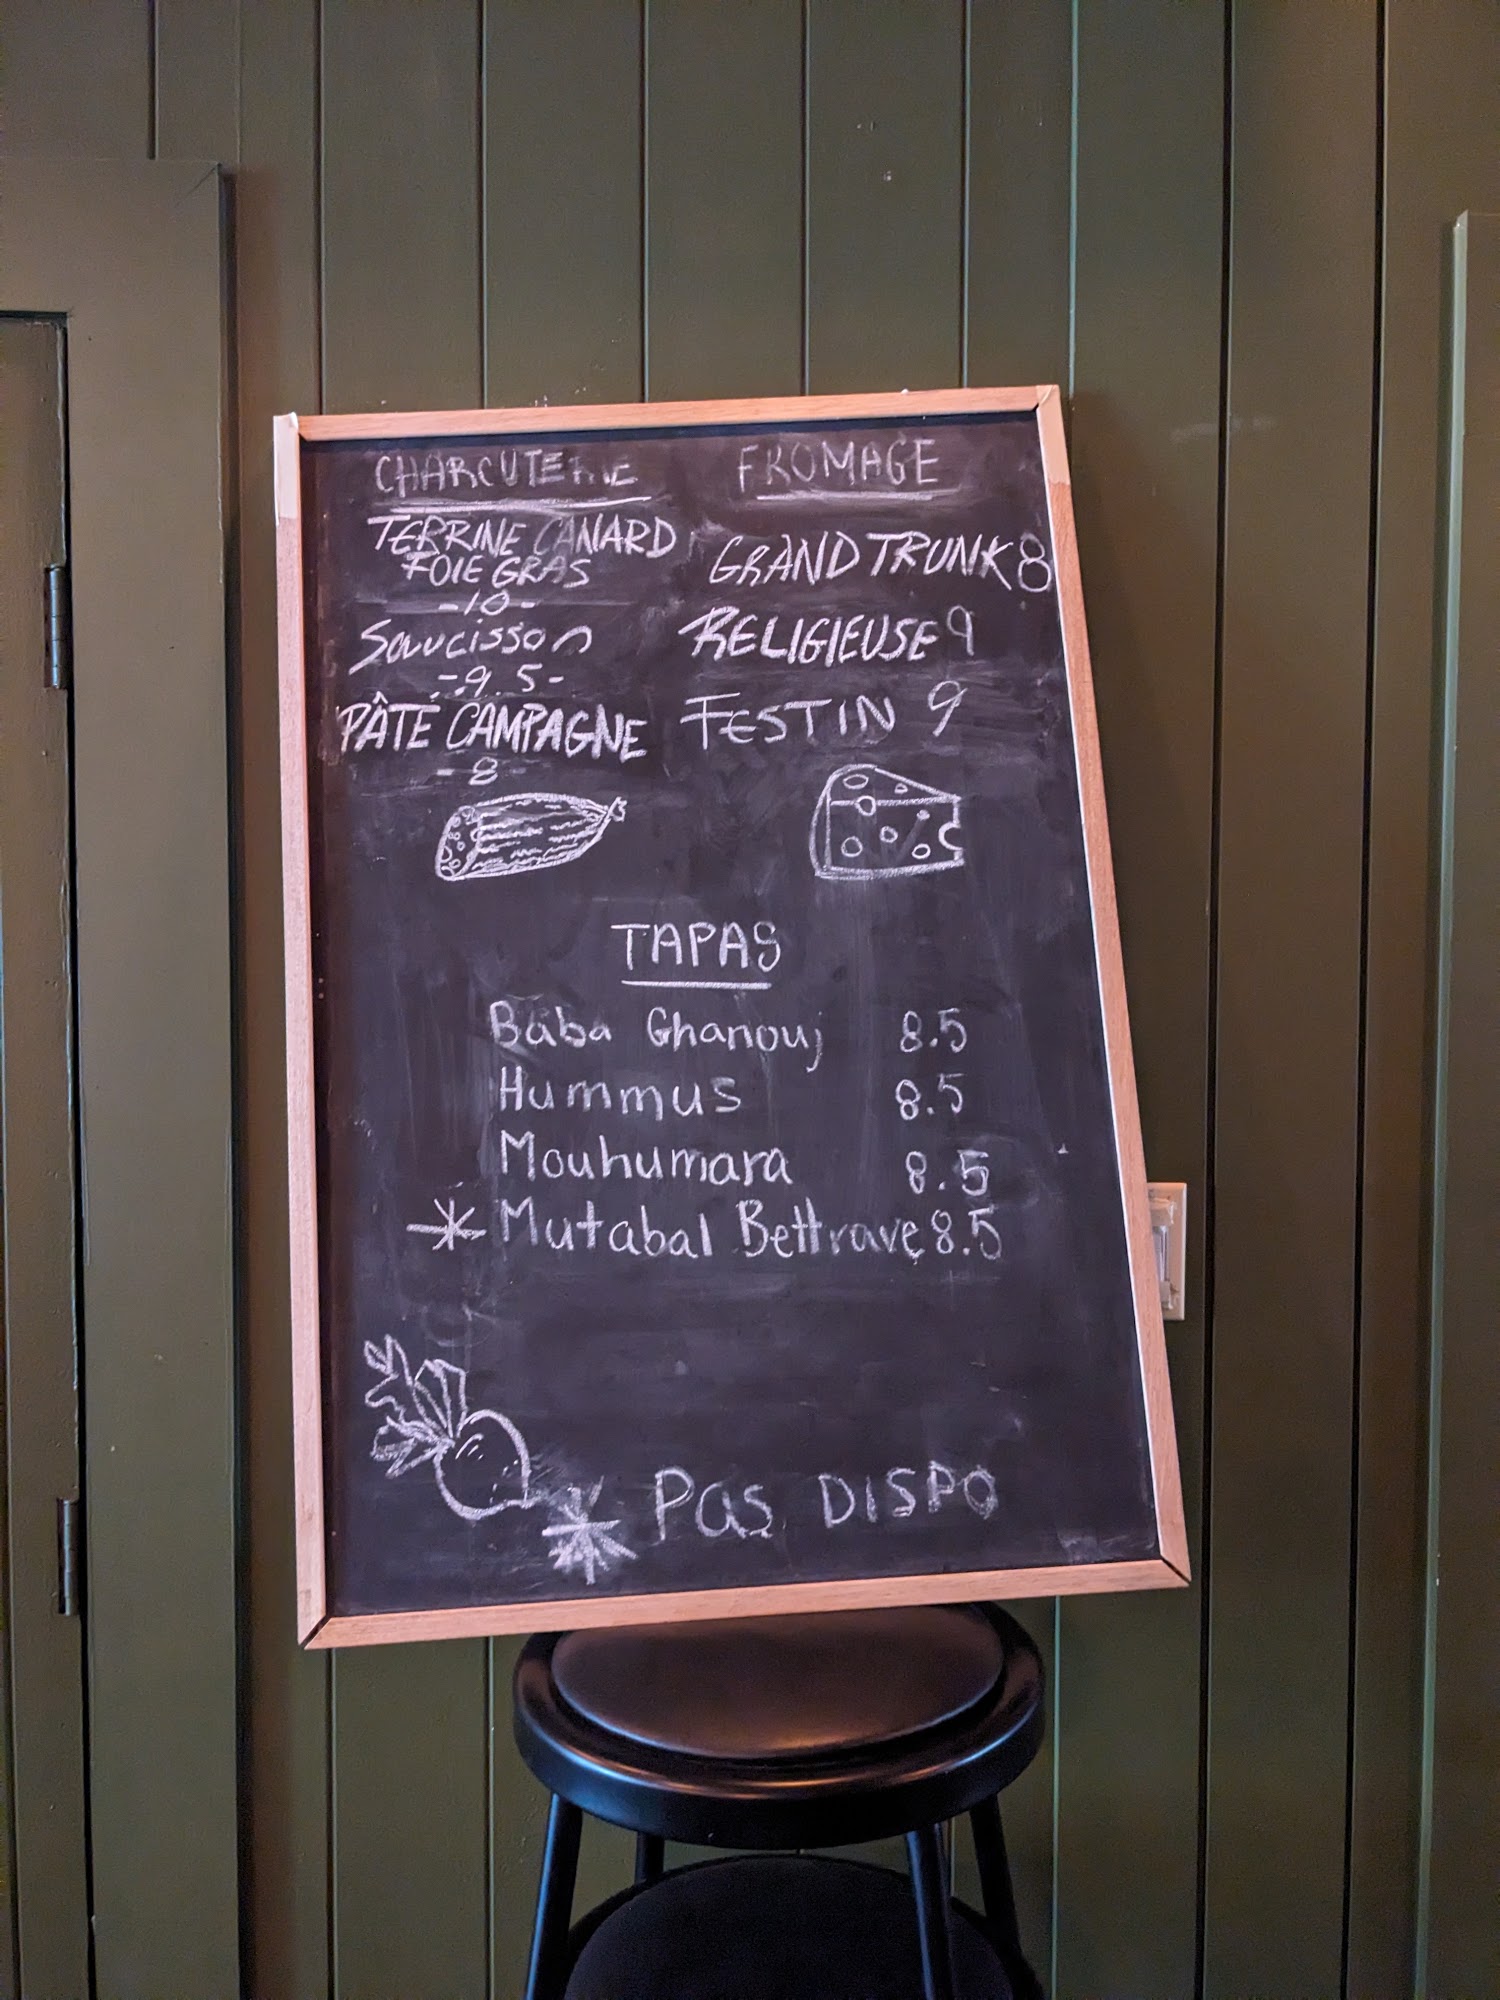 CHARCUTERIE
TERRINE CANARD
FOIE GRAS
-10-
Saucisson
-9.5-
PÂTÉ CAMPAGNE
-8
FROMAGE
GRAND TRUNK 8
RELIGIEUSE 9
FESTIN 9
TAPAS
Baba Ghanouj 8.5
Hummus 8.5
Mouhumara 8.5
* Mutabal Bettrave 8.5
* Pas DISPO